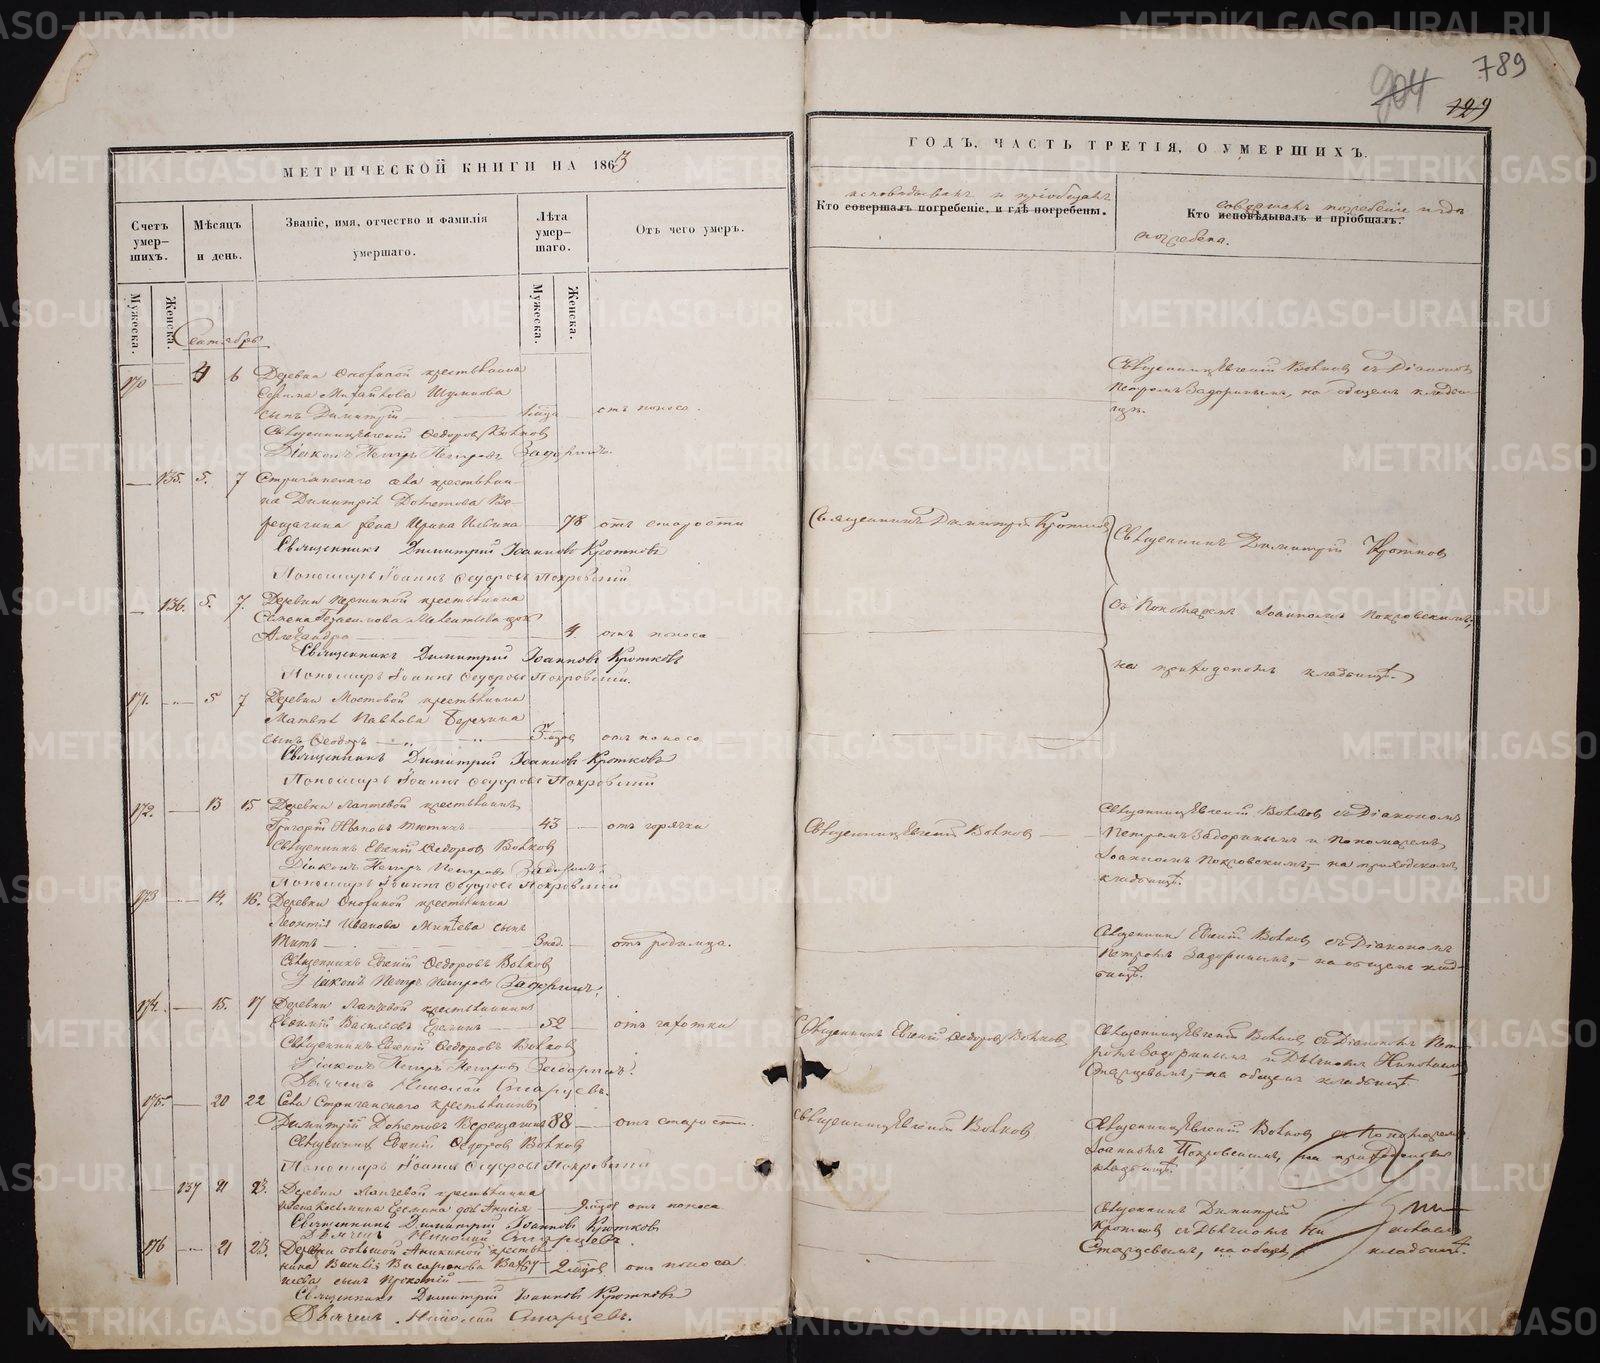 789
904
129
МЕТРИЧЕСКОЙ КНИГИ НА 1863
ГОДЪ, ЧАСТЬ ТРЕТІЯ, О УМЕРШИХЪ.
Счетъ умер-шихъ.
Мѣсяцъ и день.
Званіе, имя, отчество и фамилія умершаго.
Лѣта умер-шаго.
Отъ чего умеръ.
исповѣдывалъ и пріобщалъ
Кто совершалъ погребеніе, и гдѣ погребены.
совершалъ погребеніе и гдѣ
Кто исповѣдывалъ и пріобщалъ.
погребены.
Мужеска.
Женска.
Мужеска.
Женска.
Сентябрь
170 — 4 6 Деревни крестьянина
Шумкова
сынъ Димитрій отъ поноса
Священникъ Евгеній Ѳедоровъ Волковъ
Діаконъ Петръ Петровъ Задоринъ.
Священникъ Евгеній Волковъ съ Діакономъ
Петромъ Задоринымъ, на общемъ кладби-
щѣ.
— 135. 5. 7 Стриганскаго села крестьяни-
на Димитрія Ве-
рещагина жена Ирина Ильина — 78 отъ старости
Священникъ Димитрій Іоанновъ Кротковъ
Пономарь Іоаннъ Ѳедоровъ Покровскій
Священникъ Димитрій Кротковъ
Священникъ Димитрій Кротковъ
— 136. 5. 7. Деревни крестьянина
дочь
Александра — 4. отъ поноса
Священникъ Димитрій Іоанновъ Кротковъ
Пономарь Іоаннъ Ѳедоровъ Покровскій.
съ Пономаремъ Іоанномъ Покровскимъ,
на приходскомъ кладбищѣ.
171. 5 7 Деревни Мостовой крестьянина
Матвѣя Павлова
сынъ Ѳеодоръ отъ поноса
Священникъ Димитрій Іоанновъ Кротковъ
Пономарь Іоаннъ Ѳедоровъ Покровскій
172. — 13 15 Деревни Лаптевой крестьянинъ
Григорій Ивановъ 43 — отъ горячки
Священникъ Евгеній Ѳедоровъ Волковъ
Діаконъ Петръ Петровъ Задоринъ.
Пономарь Іоаннъ Ѳедоровъ Покровскій
Священникъ Евгеній Волковъ
Священникъ Евгеній Волковъ съ Діакономъ
Петромъ Задоринымъ и Пономаремъ
Іоанномъ Покровскимъ, на приходскомъ
кладбищѣ.
173 14. 16. Деревни крестьянина
Леонтія Иванова Минѣева сынъ
Титъ 3 нед. — отъ родимца.
Священникъ Евгеній Ѳедоровъ Волковъ
Діаконъ Петръ Петровъ Задоринъ.
Священникъ Евгеній Волковъ съ Діакономъ
Петромъ Задоринымъ, — на общемъ клад-
бищѣ.
174. — 15. 17 Деревни Лаптевой крестьянинъ
Васильевъ 52 — отъ чахотки
Священникъ Евгеній Ѳедоровъ Волковъ
Діаконъ Петръ Петровъ Задоринъ.
Дьячекъ Николай Старцевъ.
Священникъ Евгеній Ѳедоровъ Волковъ
Священникъ Евгеній Волковъ, съ Діакономъ Пет-
ромъ Задоринымъ и Дьячкомъ Николаемъ
Старцевымъ, — на общемъ кладбищѣ
175. — 20 22 Села Стриганскаго крестьянинъ
Димитрій Верещагинъ 88 — отъ старости.
Священникъ Евгеній Ѳедоровъ Волковъ
Пономарь Іоаннъ Ѳедоровъ Покровскій
Священникъ Евгеній Волковъ
Священникъ Евгеній Волковъ съ Пономаремъ
Іоанномъ Покровскимъ, на приходскомъ
кладбищѣ.
— 137 21 23. Деревни Лаптевой крестьянина
отъ поноса
Священникъ Димитрій Іоанновъ Кротковъ
Дьячекъ Николай Старцевъ.
Священникъ Димитрій
Кротковъ съ Дьячкомъ Ни колаемъ
Старцевымъ, на общемъ кладбищѣ.
176 21 23. Деревни большой Аникиной крестья-
нина
сынъ Прокопій отъ поноса
Священникъ Димитрій Іоанновъ Кротковъ
Дьячекъ Николай Старцевъ.
METRIKI.GASO-URAL.RU